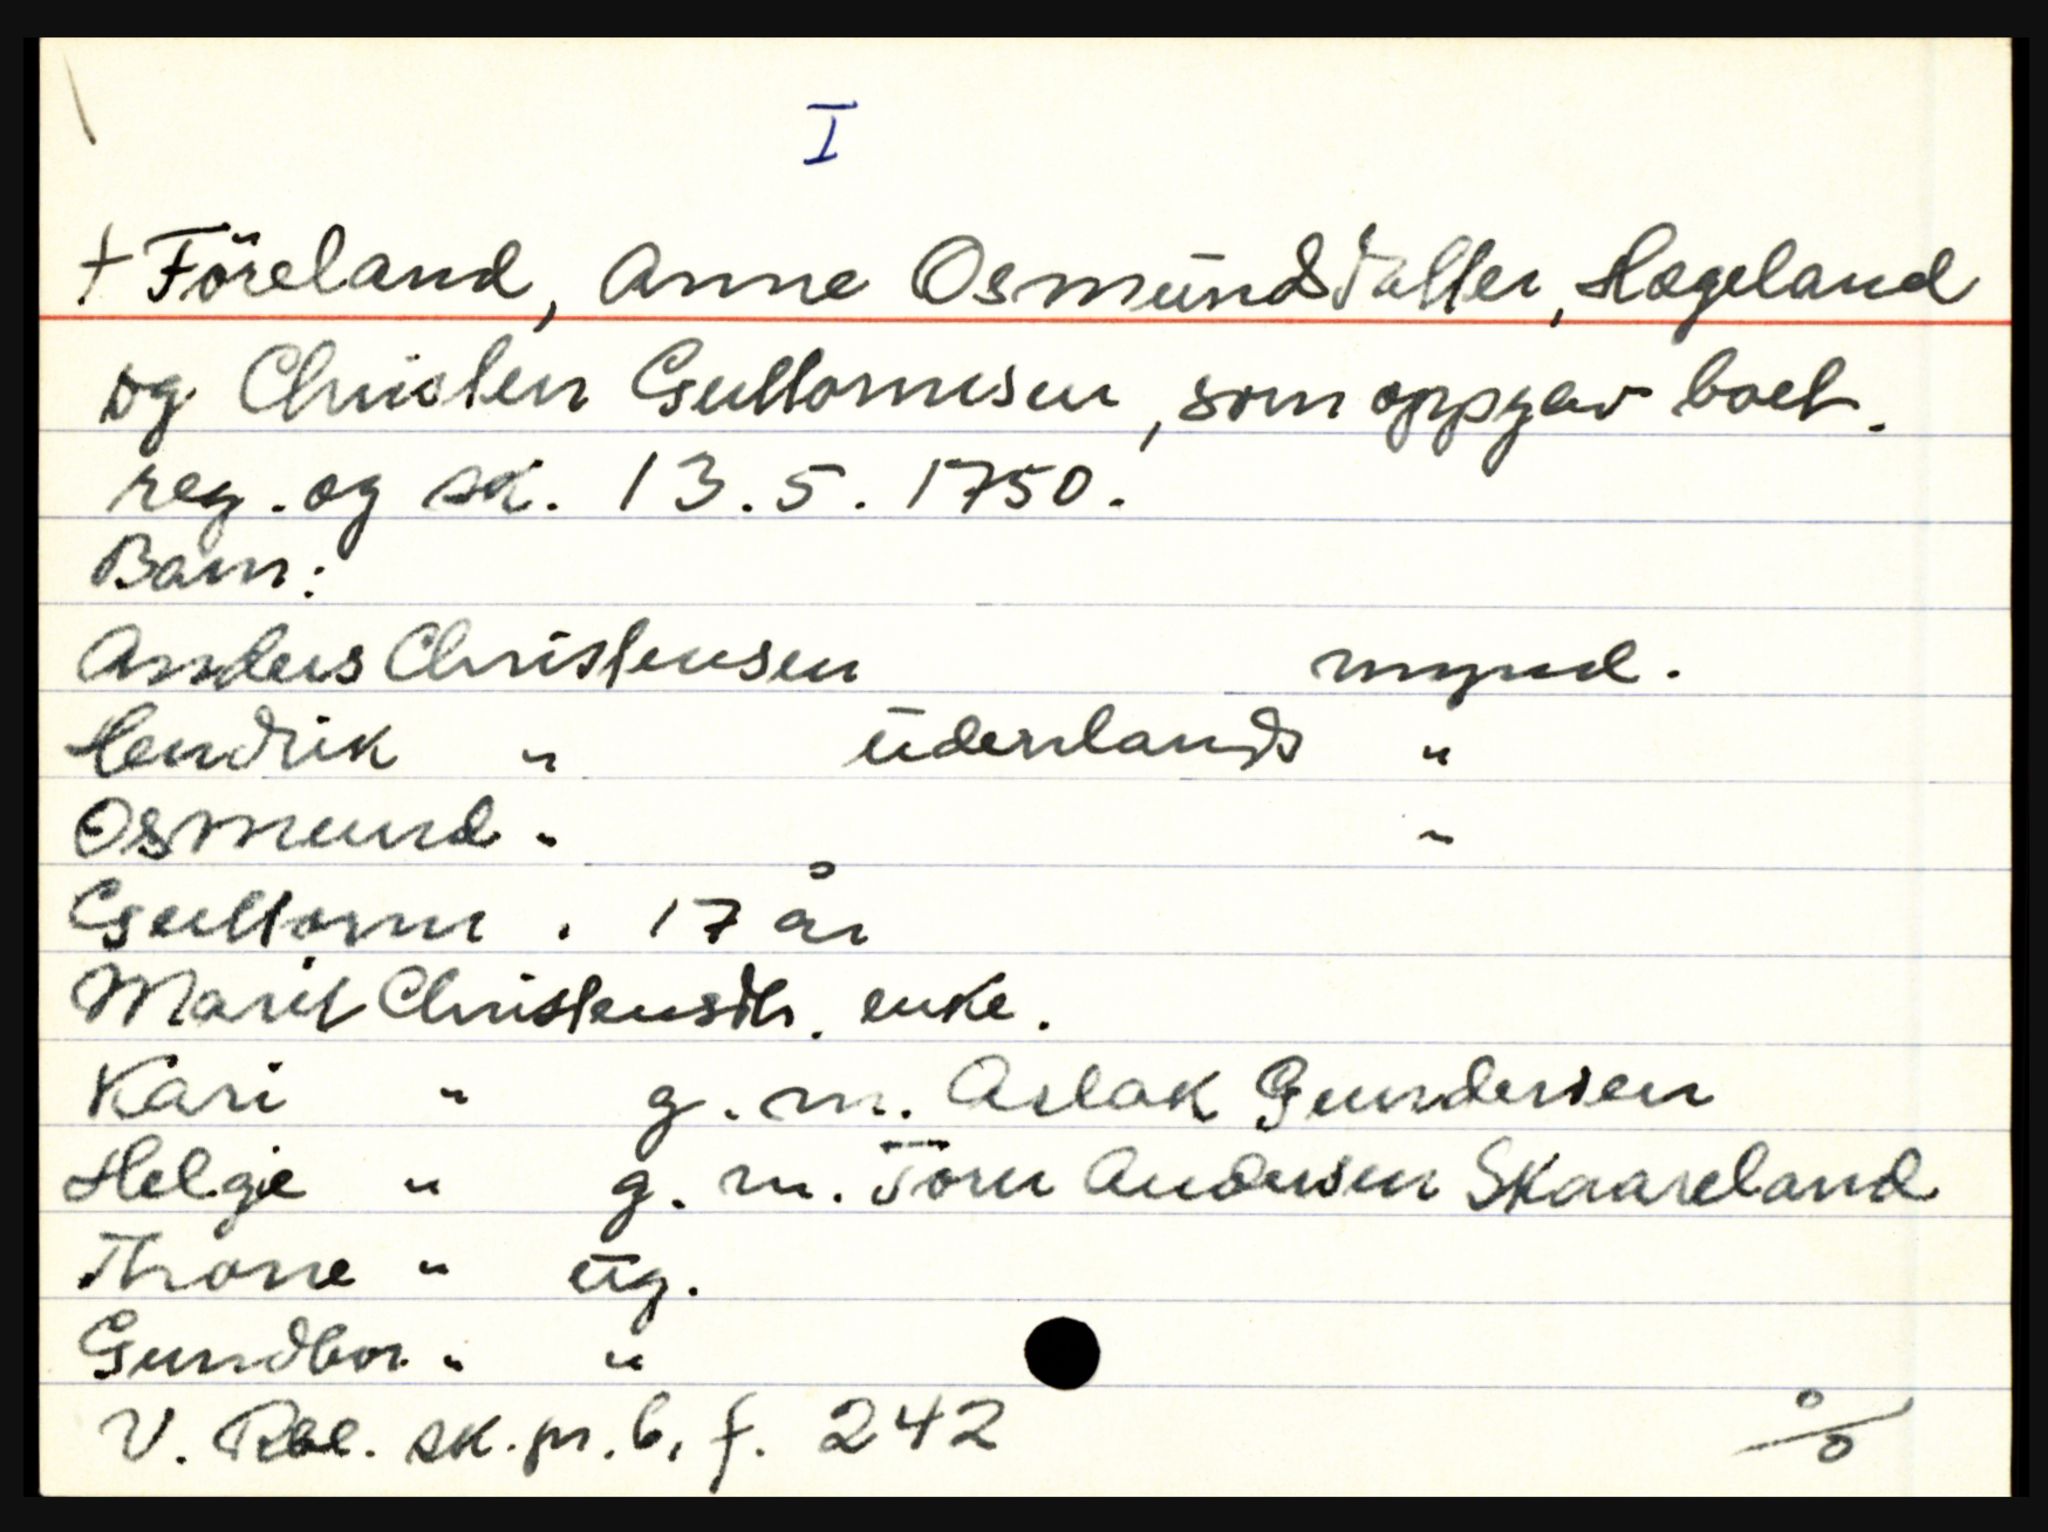 I
+ Föreland, Anne Osmundsdatter, Hægeland
og Christen Guttormsen, som oppgav boet.
reg. og sk. 13.5.1750.
Barn:
Anders Christensen mynd.
Hendrik " udenlands "
Osmund " "
Guttorm . 17 år
Marit Christensdtr. enke.
Kari " g. m. Aslak Gundersen
Helgje " g. m. Torer Andersen Skaareland
Throne " ug.
Gundbor " "
V. Rbl. sk.pr. 6, f. 242
0/0